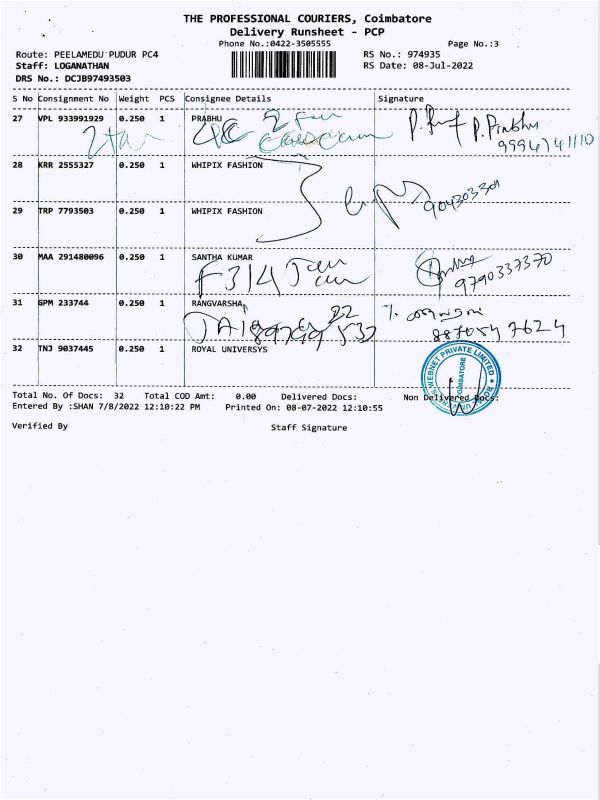 THE PROFESSIONAL COURIERS, Coimbatore
Delivery Runsheet - PCP
Phone No.:0422-3505555 Page No.:3
Route: PEELAMEDU PUDUR PC4 RS No.: 974935
Staff: LOGANATHAN RS Date: 08-Jul-2022
DRS No.: DCJB97493503
S No Consignment No Weight PCS Consignee Details Signature
27 VPL 933991929 0.250 1 PRABHU
P. Prabhu
9994741110
28 KRR 2555327 0.250 1 WHIPIX FASHION
904303304
29 TRP 7793503 0.250 1 WHIPIX FASHION
30 MAA 291480096 0.250 1 SANTHA KUMAR
F314
9790337370
31 GPM 233744 0.250 1 RANGVARSHA
8870547624
32 TNJ 9037445 0.250 1 ROYAL UNIVERSYS
WEBNET PRIVATE LIMITED
COIMBATORE
Total No. Of Docs: 32 Total COD Amt: 0.00 Delivered Docs: Non Delivered Docs:
Entered By :SHAN 7/8/2022 12:10:22 PM Printed On: 08-07-2022 12:10:55
Verified By Staff Signature